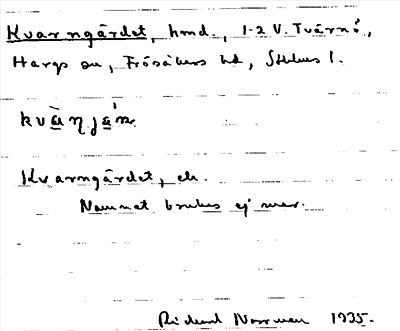 Kvarngärdet, hmd., 1-2 V. Tvärnö,
Hargs sn, Frösåkers hd, Sthlms l.
kvàŋjän
Kvarngärdet, ek.
Namnet brukas ej mer.
Rickard Norrman 1935.